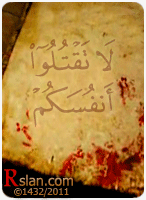 لَا تَقْتُلُوٓا۟
أَنفُسَكُمْ
Rslan.com
©1432/2011